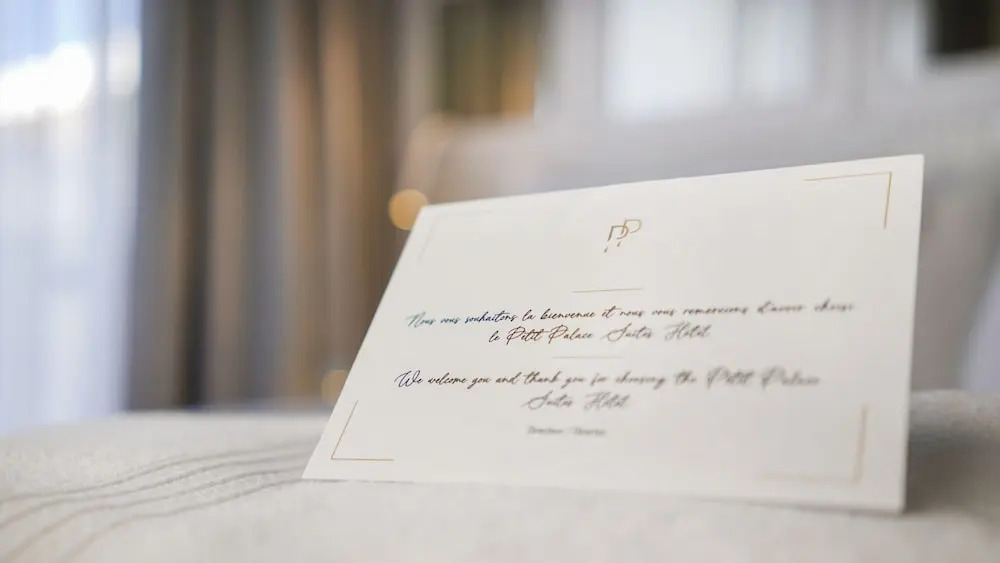 PP
Nous vous souhaitons la bienvenue et nous vous remercions d'avoir choisi
le Petit Palace Suites Hotel
We welcome you and thank you for choosing the Petit Palace
Suites Hotel